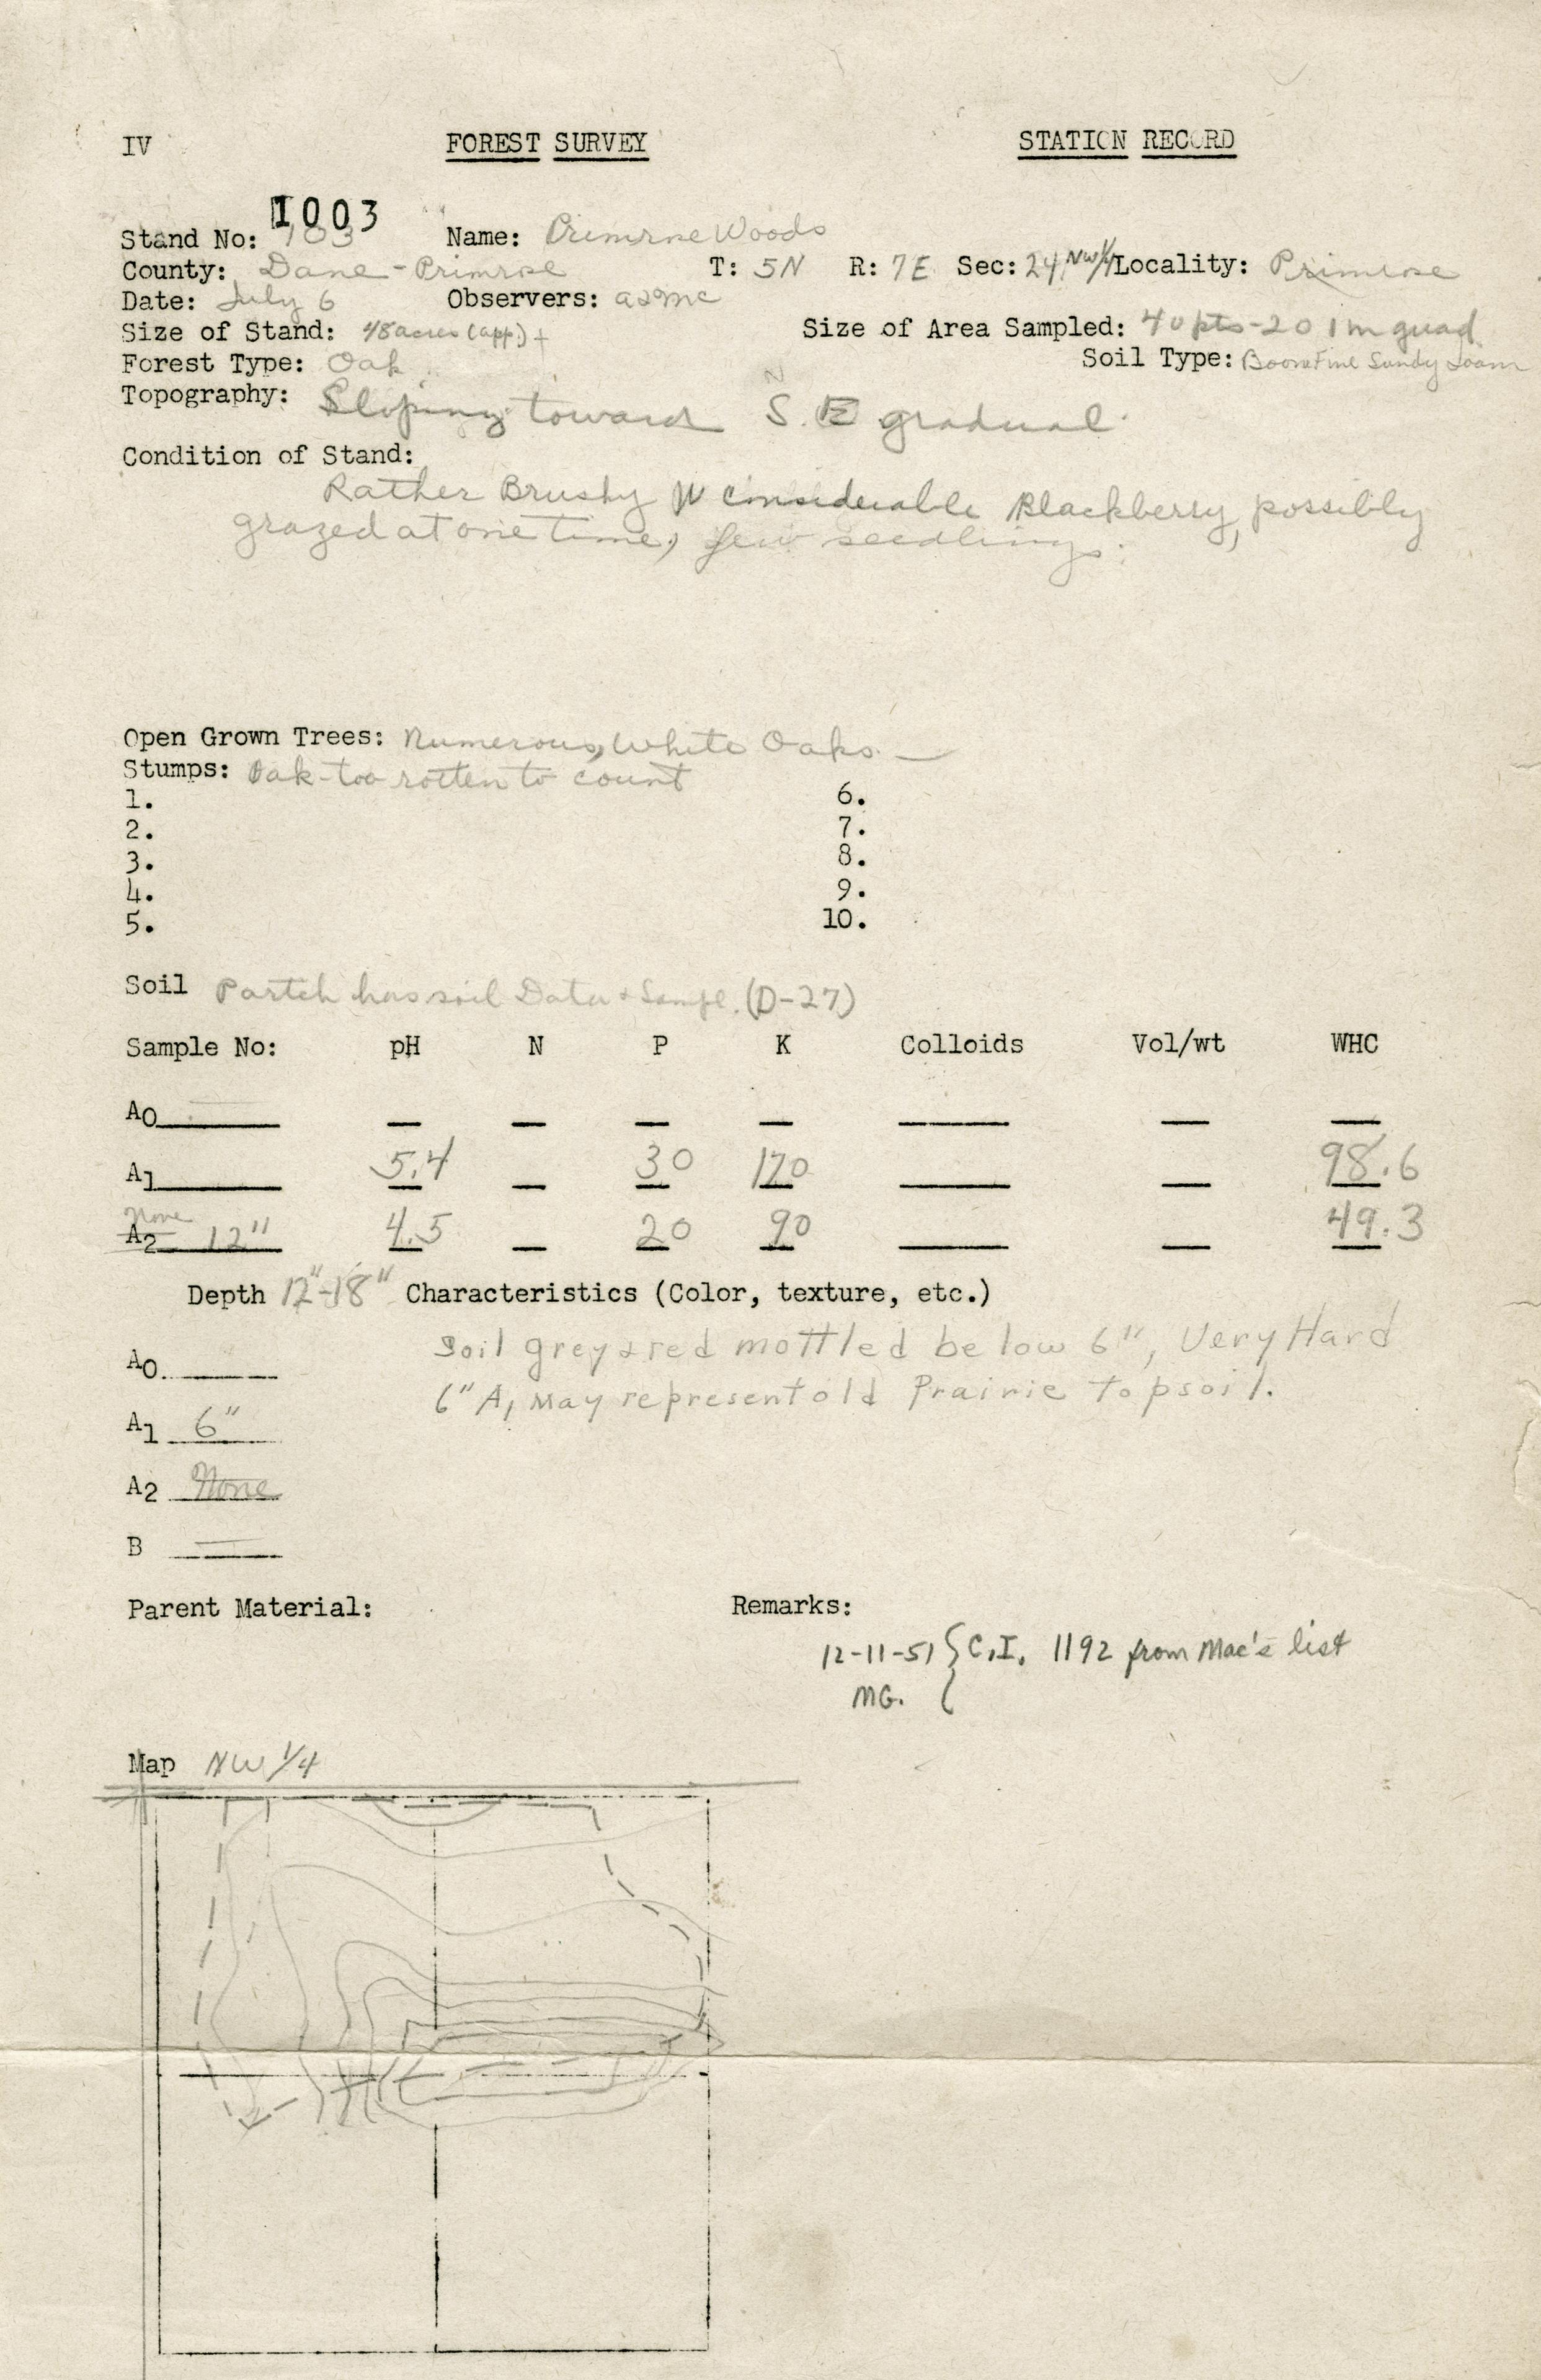 IV FOREST SURVEY STATION RECORD
1003
Stand No: 103 Name: Primrose Woods
County: Dane - Primrose T: 5N R: 7E Sec: 24 NW 1/4 Locality: Primrose
Date: July 6 Observers:
Size of Stand: 48 acres (app.) + Size of Area Sampled: 40 pts - 20 1m quad
Forest Type: Oak Soil Type: Boone Fine Sandy Loam
Topography: Sloping toward S. E gradual
Condition of Stand:
Rather Brushy W considerable Blackberry, possibly
grazed at one time, few seedlings.
Open Grown Trees: Numerous, White Oaks -
Stumps: Oak - too rotten to count
1. 6.
2. 7.
3. 8.
4. 9.
5. 10.
Soil Partch has soil Data + Sampl. (D-27)
Sample No: pH N P K Colloids Vol/wt WHC
A0
A1 5.4 30 120 98.6
None
A2 12" 4.5 20 90 49.3
Depth 12"-18" Characteristics (Color, texture, etc.)
Soil grey & red mottled below 6", Very Hard
A0
6" A1 may represent old Prairie topsoil.
A1 6"
A2 None
B
Parent Material: Remarks:
12-11-51 { C.I. 1192 from Mac's list
MG.
Map NW 1/4